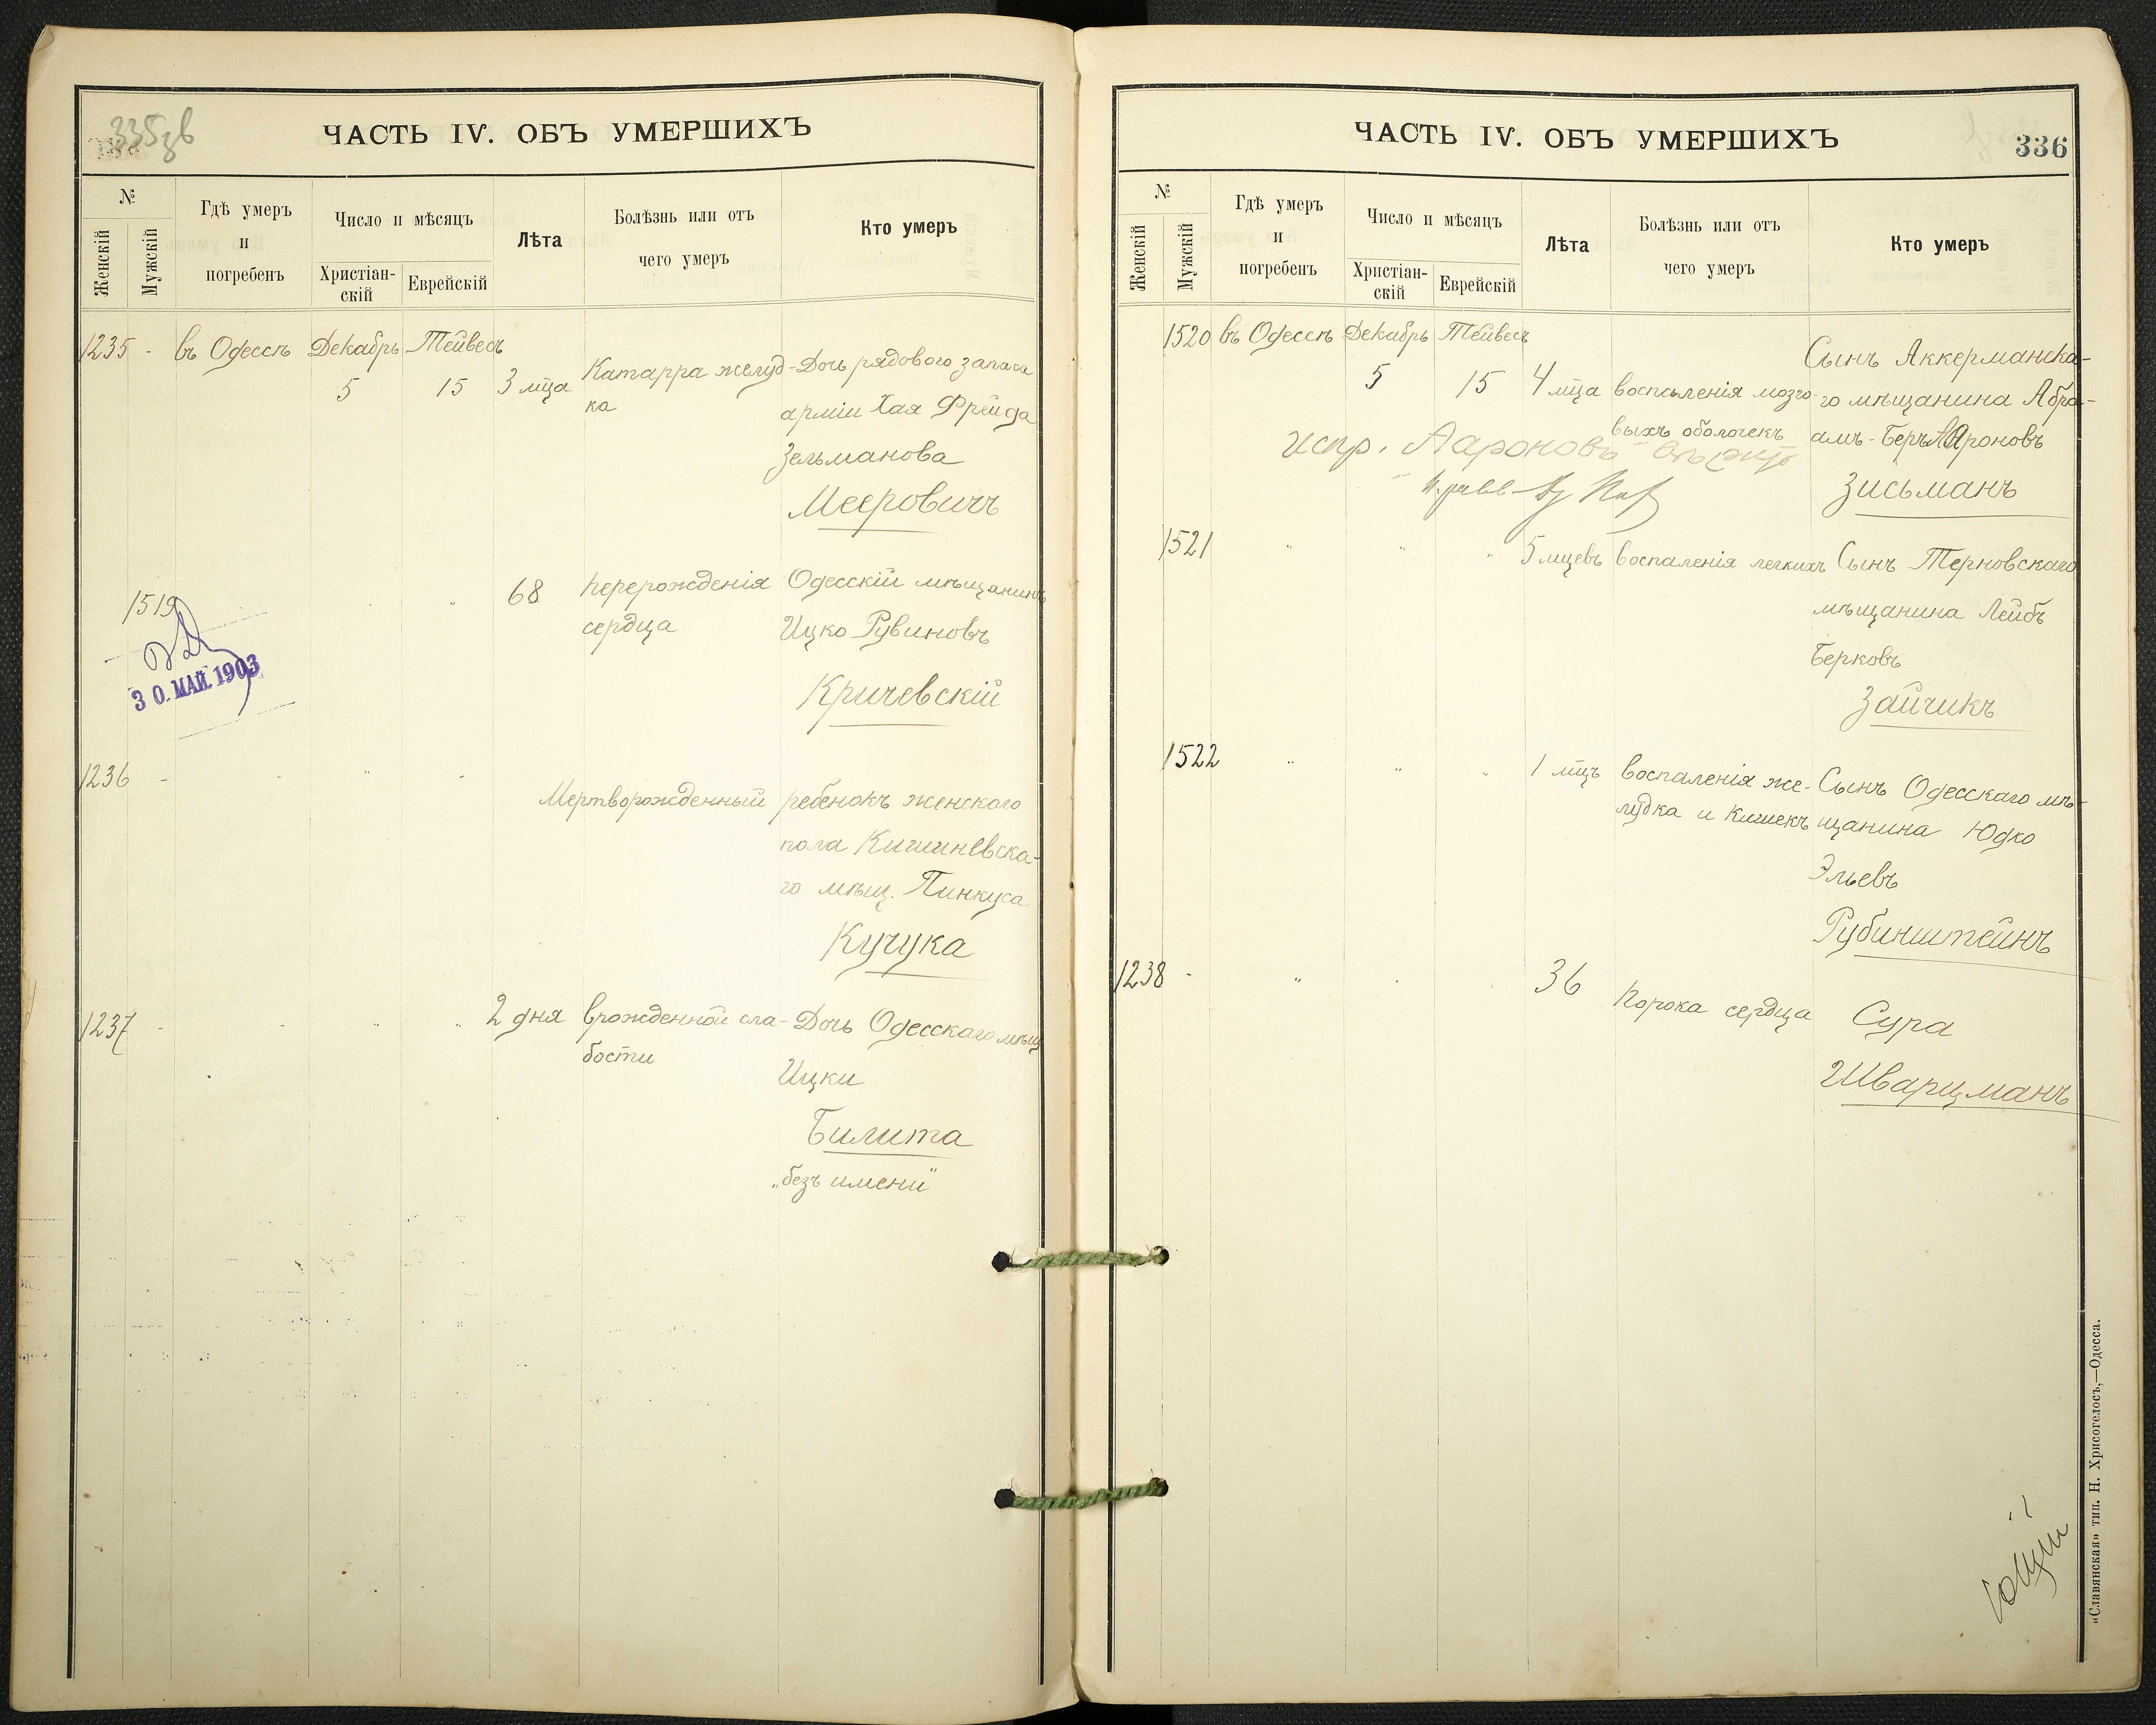 335 зв
ЧАСТЬ IV. ОБЪ УМЕРШИХЪ
№
Женскій
Мужскій
Гдѣ умеръ
и
погребенъ
Число и мѣсяцъ
Христіан-
скій
Еврейскій
Лѣта
Болѣзнь или отъ
чего умеръ
Кто умеръ
1235 - въ Одессѣ Декабрь Тейвесъ
5 15 3 мца Катарра желуд- Дочь рядового запаса
ка арміи Хая Фрейда
Зельманова
Мееровичъ
1519 " 68 перерожденія Одесскій мѣщанинъ
сердца Ицко Рувиновъ
Кричевскій
30. МАЙ. 1903
1236 - - " -
Мертворожденный ребенокъ женскаго
пола Кишиневска-
го мѣщ. Пинкуса
Кучука
1237 - - " " 2 дня врожденной сла- Дочь Одесскаго мѣщ
бости Ицки
Билита
„безъ имени"
ЧАСТЬ IV. ОБЪ УМЕРШИХЪ
336
№
Женскій
Мужскій
Гдѣ умеръ
и
погребенъ
Число и мѣсяцъ
Христіан-
скій
Еврейскій
Лѣта
Болѣзнь или отъ
чего умеръ
Кто умеръ
1520 въ Одессѣ Декабрь Тейвесъ Сынъ Аккерманска-
5 15 4 мца воспаленія мозго- го мѣщанина Абра-
выхъ оболочекъ амъ-Беръ Ароновъ
испр. Аароновъ
Зисьманъ
1521 " " " 5 мцевъ воспаленія легкихъ Сынъ Терновскаго
мѣщанина Лейбъ
Берковъ
Зайчикъ
1522 " " " 1 мцъ воспаленія же- Сынъ Одесскаго мѣ-
лудка и кишекъ щанина Юдко
Эльевъ
Рубинштейнъ
1238 - " " 36 порока сердца Сура
Шварцманъ
«Славянская» тип. Н. Хрисогелосъ,—Одесса.